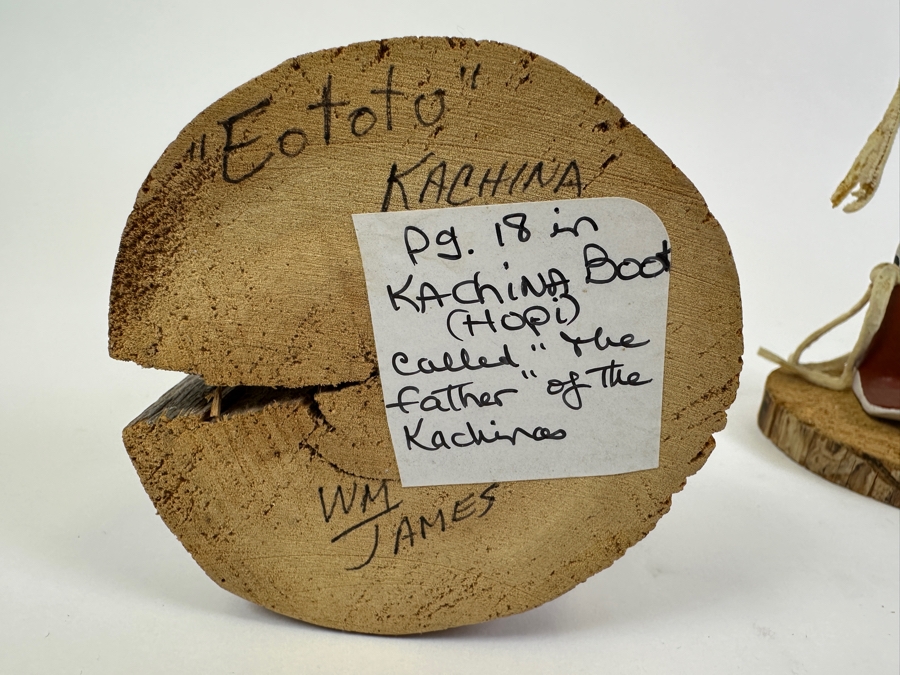 "Eototo"
KACHINA
pg. 18 in
KAChiNA Book
(Hopi)
Called "the
father" of the
Kachinas
WM
JAMES